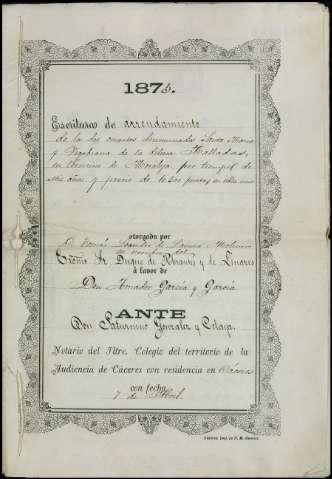 1875.
Escritura de arrendamiento
de los cuartos denominados Santa Maria
y de la dehesa Malladas,
en término de Moraleja, por tiempo de
seis años y precio de 10.500 pesetas en cada uno
otorgada por
D. Tomás Leandro de
Excmo. Sr. Duque de Abrantes y de Linares
á favor de
Don Amador Garcia y Garcia
ANTE
Don Saturnino Gonzalez y Celaya,
Notario del Iltre. Colegio del territorio de la
Audiencia de Cáceres con residencia en
con fecha
7 de Abril.